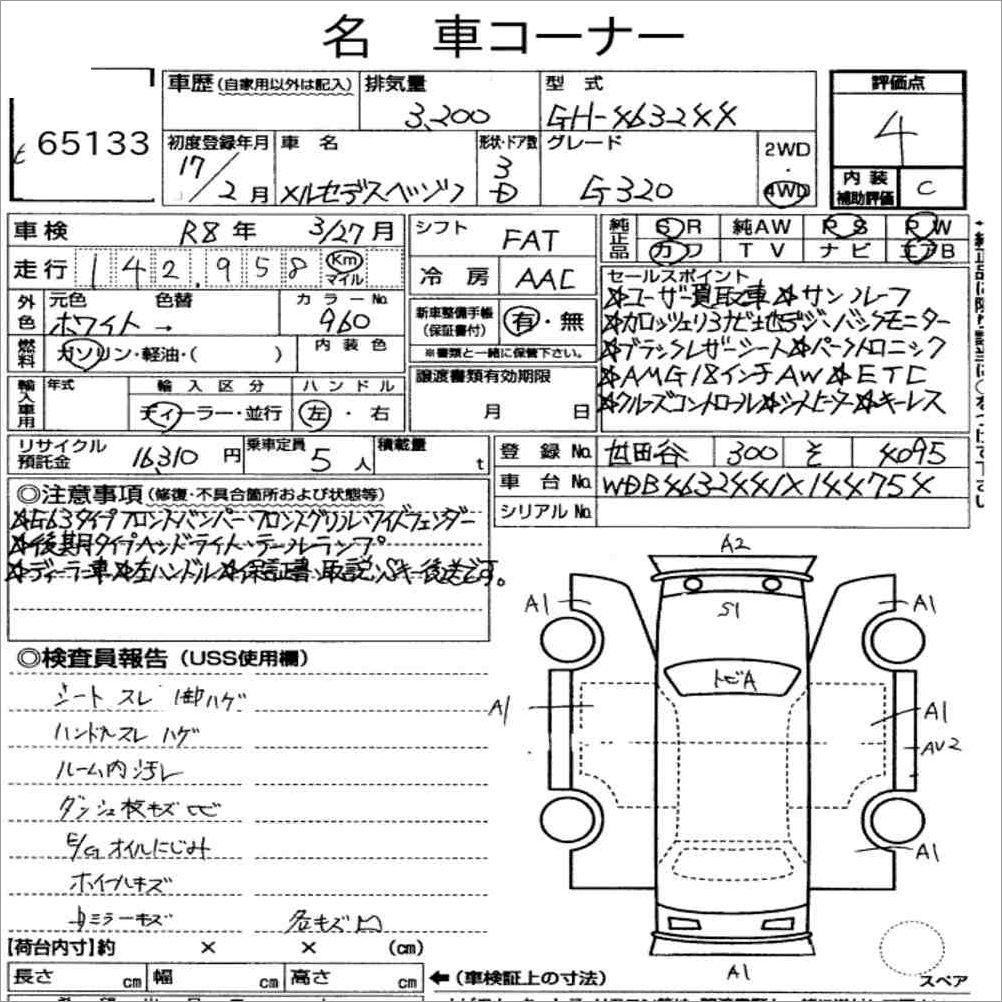 名 車コーナー
65133
車歴 (自家用以外は記入)
排気量
3,200
型 式
GH-463244
評価点
4
内装
補助評価
C
初度登録年月
17/2月
車 名
メルセデスベンツ
形状・ドア数
3
D
グレード
G320
2WD
・
4WD
車検
R8年 3/27月
走行 142,958 Km
マイル
シフト
FAT
冷 房
AAC
純正品
SR 純AW PS PW
カワ TV ナビ エアB
セールスポイント
☆ユーザー買取車☆サンルーフ
☆カロッツェリアナビ地デジ、バックモニター
☆ブラックレザーシート☆パークトロニック
☆AMG18インチAW☆ETC
☆クルーズコントロール☆シートヒーター☆キーレス
外色
元色 色替
ホワイト →
カラーNo.
960
燃料
ガソリン・軽油・( )
内装色
新車整備手帳
(保証書付)
有・無
※書類と一緒に保管下さい。
輸入車用
年式
輸入区分
ディーラー・並行
ハンドル
左・右
譲渡書類有効期限
月 日
リサイクル
預託金
16,310円
乗車定員
5人
積載量
t
登録No. 世田谷 300 そ 4095
車台No. WDB4632441X144754
シリアルNo.
◎注意事項 (修復・不具合箇所および状態等)
☆G63タイプフロントバンパー・フロントグリル・ワイドフェンダー
☆後期タイプヘッドライト・テールランプ
☆ディーラー車☆左ハンドル☆保証書、取説、Sキー後送です。
◎検査員報告 (USS使用欄)
シート スレ ハゲ
ハンドルスレ ハゲ
ルーム内汚レ
ダッシュ板キズ ビ
E/G オイルにじみ
ホイールキズ
ミラーキズ
各キズ凹
A2
A1
A1
S1
トビA
A1
A1
AU2
A1
A1
スペア
【荷台内寸】約 × × (cm)
長さ cm 幅 cm 高さ cm
← (車検証上の寸法)